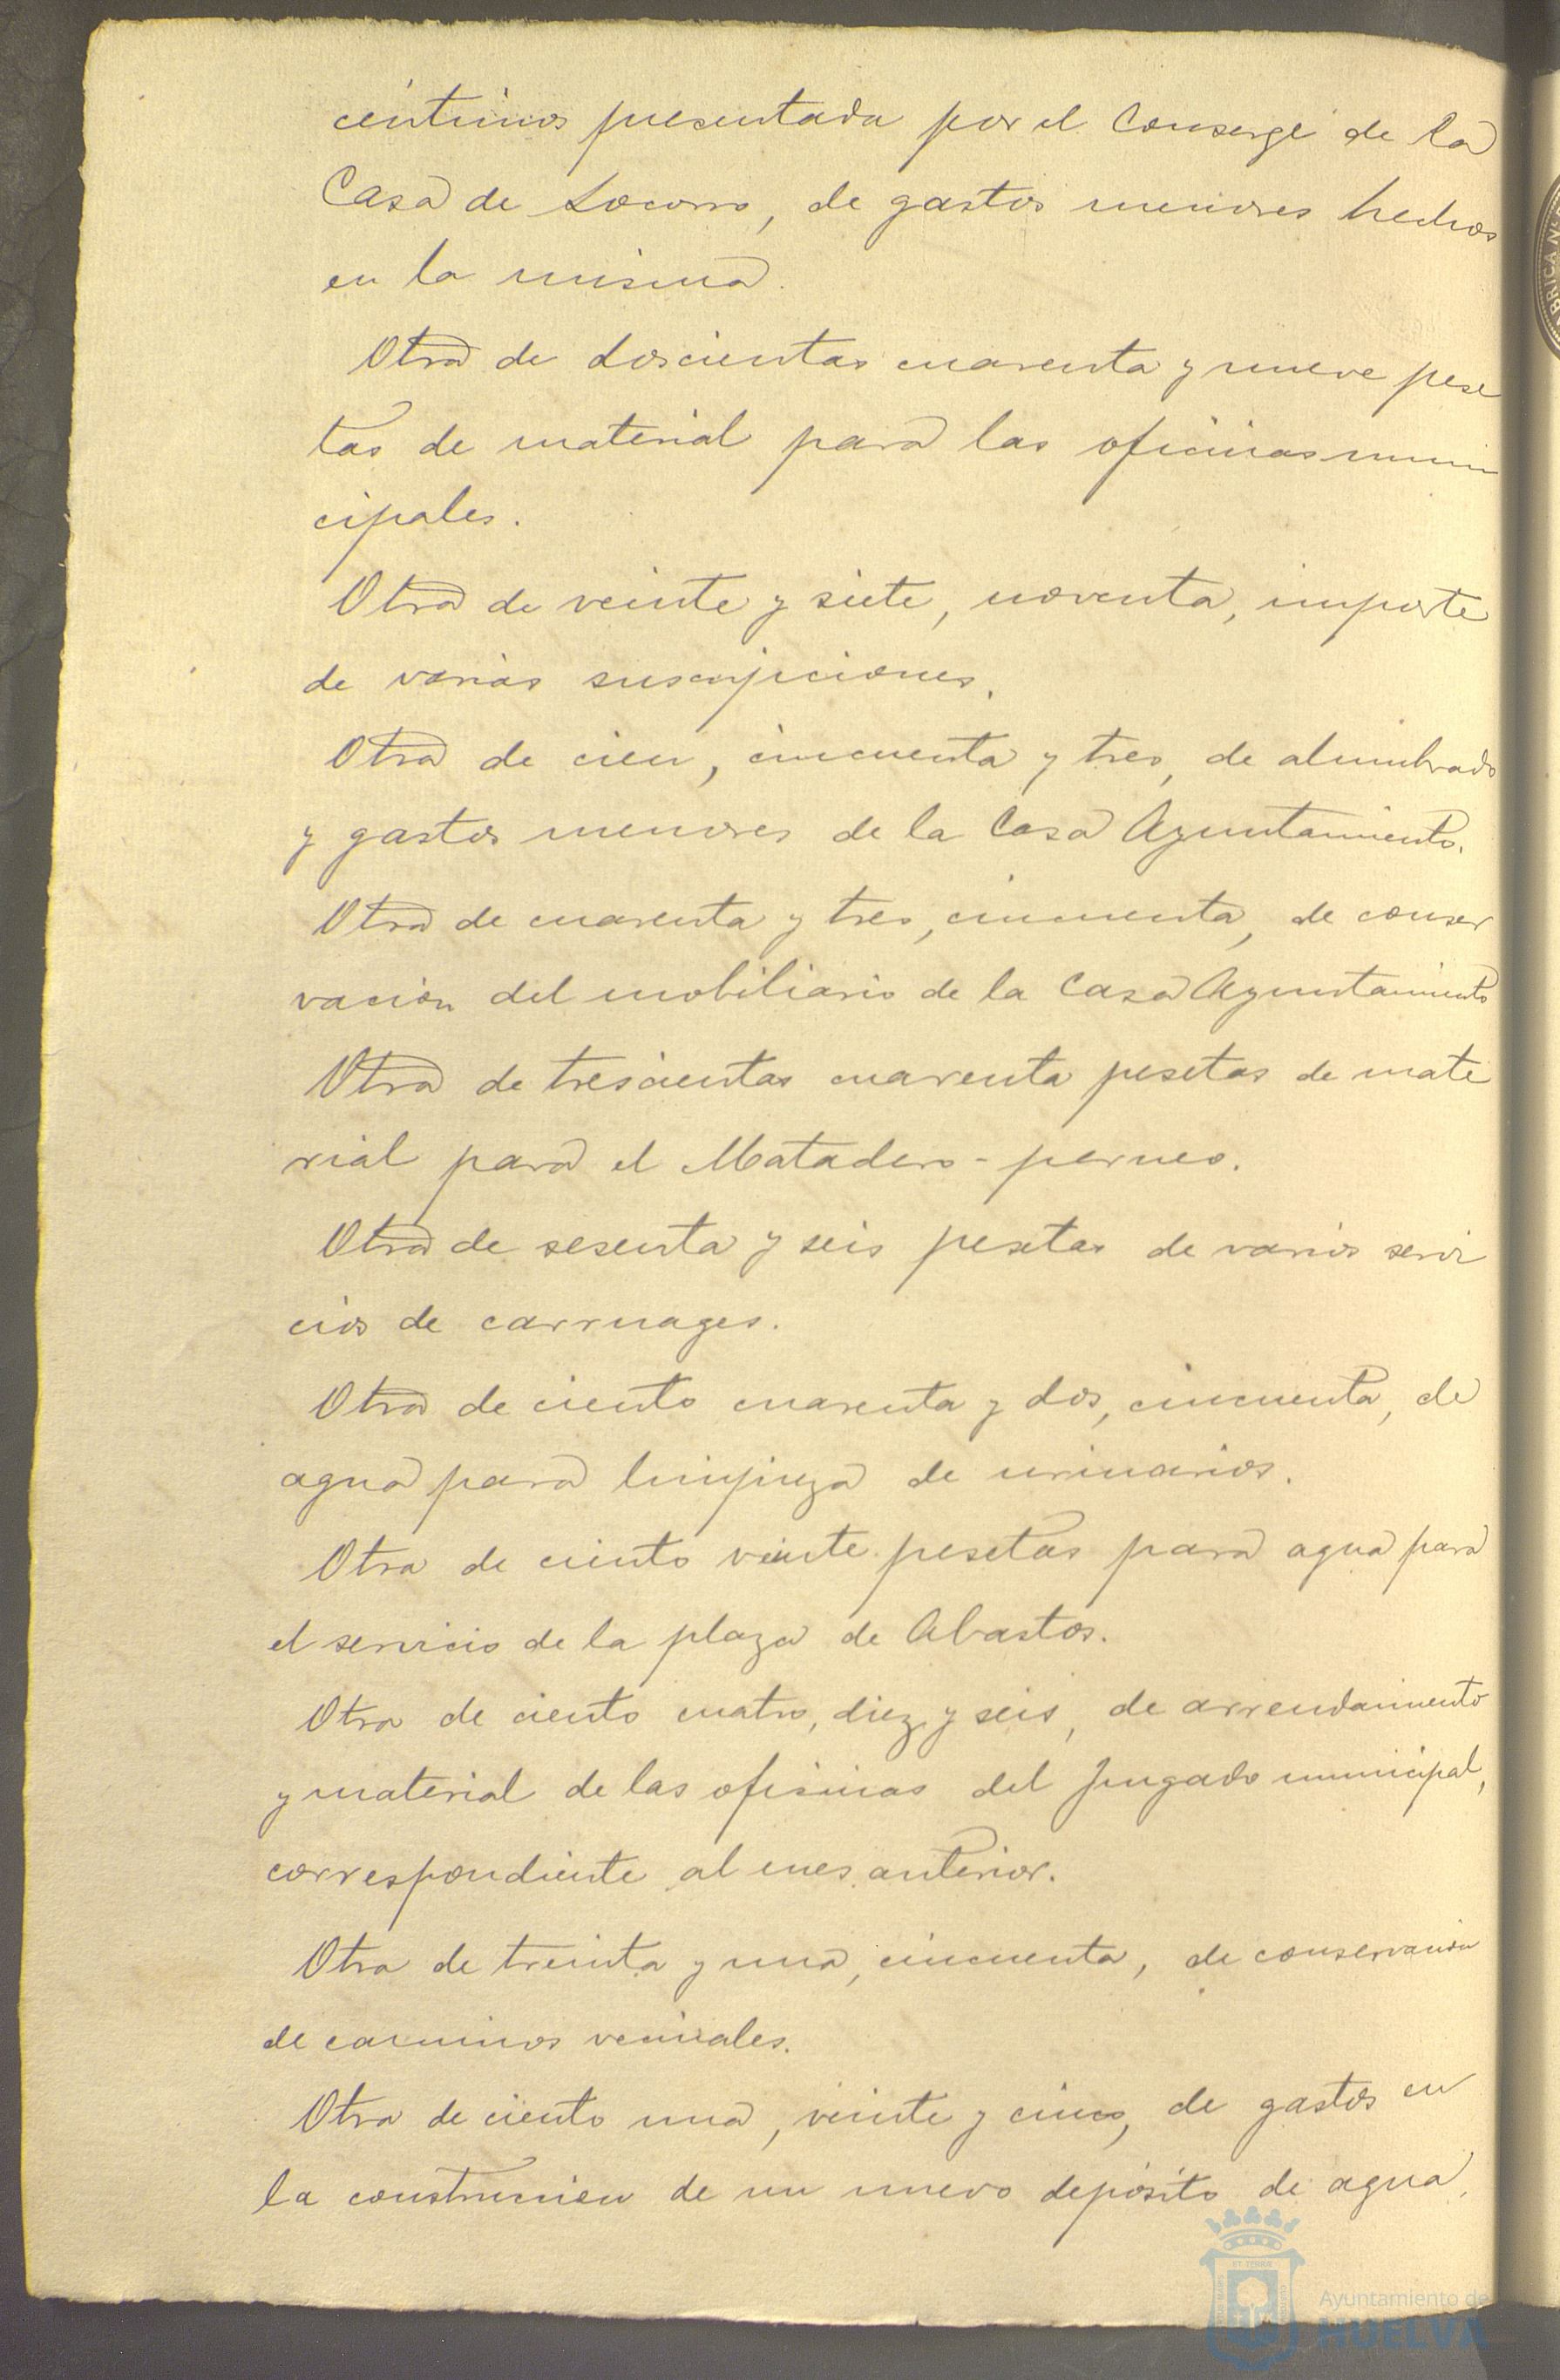 céntimos presentada por el Conserge de la
Casa de Socorro, de gastos menores hechos
en la misma.
Otra de doscientas cuarenta y nueve pese
tas de material para las oficinas muni
cipales.
Otra de veinte y siete, noventa, importe
de varias suscripciones.
Otra de cien, cincuenta y tres, de alumbrado
y gastos menores de la Casa Ayuntamiento.
Otra de cuarenta y tres, cincuenta, de conser
vación del mobiliario de la Casa Ayuntamiento
Otra de trescientas cuarenta pesetas de mate
rial para el Matadero - perneo.
Otra de sesenta y seis pesetas de varios servi
cios de carruages.
Otra de ciento cuarenta y dos, cincuenta, de
agua para limpieza de urinarios.
Otra de ciento veinte pesetas para agua para
el servicio de la plaza de Abastos.
Otra de ciento cuatro, diez y seis, de arrendamiento
y material de las oficinas del Juzgado municipal,
correspondiente al mes anterior.
Otra de treinta y una, cincuenta, de conservación
de caminos vecinales.
Otra de ciento una, veinte y cinco, de gastos en
la construcción de un nuevo depósito de agua,
Ayuntamiento de
HUELVA